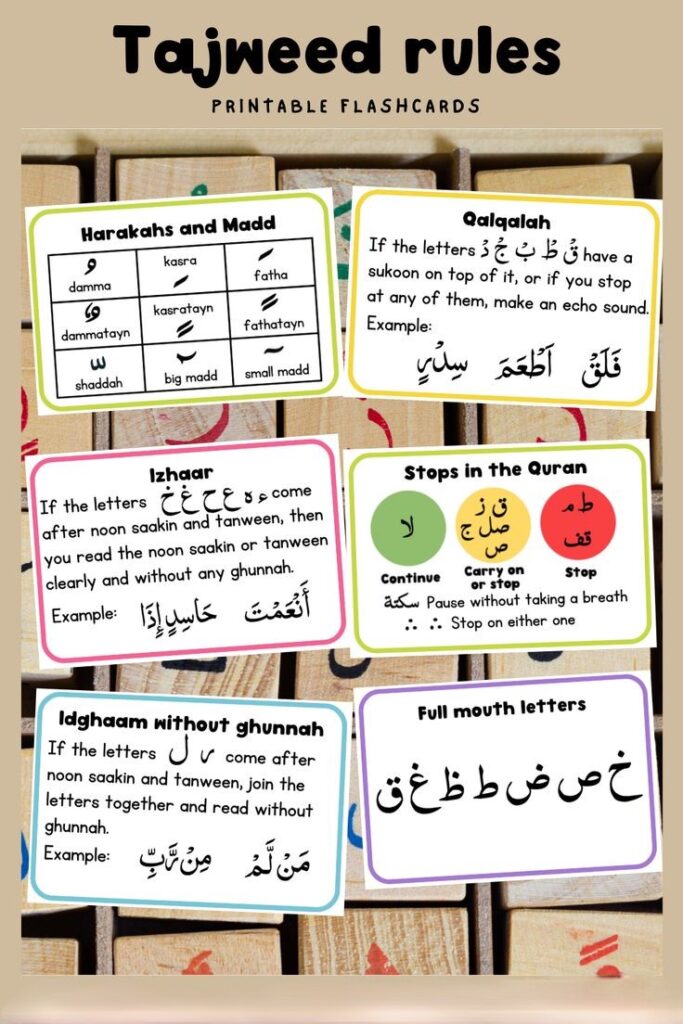 Tajweed rules
PRINTABLE FLASHCARDS
Harakahs and Madd
ُ damma
kasra ِ
َ fatha
ٌ dammatayn
kasratayn ٍ
ً fathatayn
ّ shaddah
big madd
small madd
Qalqalah
If the letters قْ طْ بْ جْ دْ have a
sukoon on top of it, or if you stop
at any of them, make an echo sound.
Example:
فَلَقْ اَطْعَمَ سِدْرٍ
Izhaar
If the letters ء ه ع ح غ خ come
after noon saakin and tanween, then
you read the noon saakin or tanween
clearly and without any ghunnah.
Example: أَنْعَمْتَ حَاسِدٍ إِذَا
Stops in the Quran
لا
ق ز
صل ج
ص
ط م
قف
Continue
Carry on
or stop
Stop
سكتة Pause without taking a breath
∴ ∴ Stop on either one
Idghaam without ghunnah
If the letters ر ل come after
noon saakin and tanween, join the
letters together and read without
ghunnah.
Example: مَنْ لَّمْ مِنْ رَّبِّ
Full mouth letters
خ ص ض ط ظ غ ق